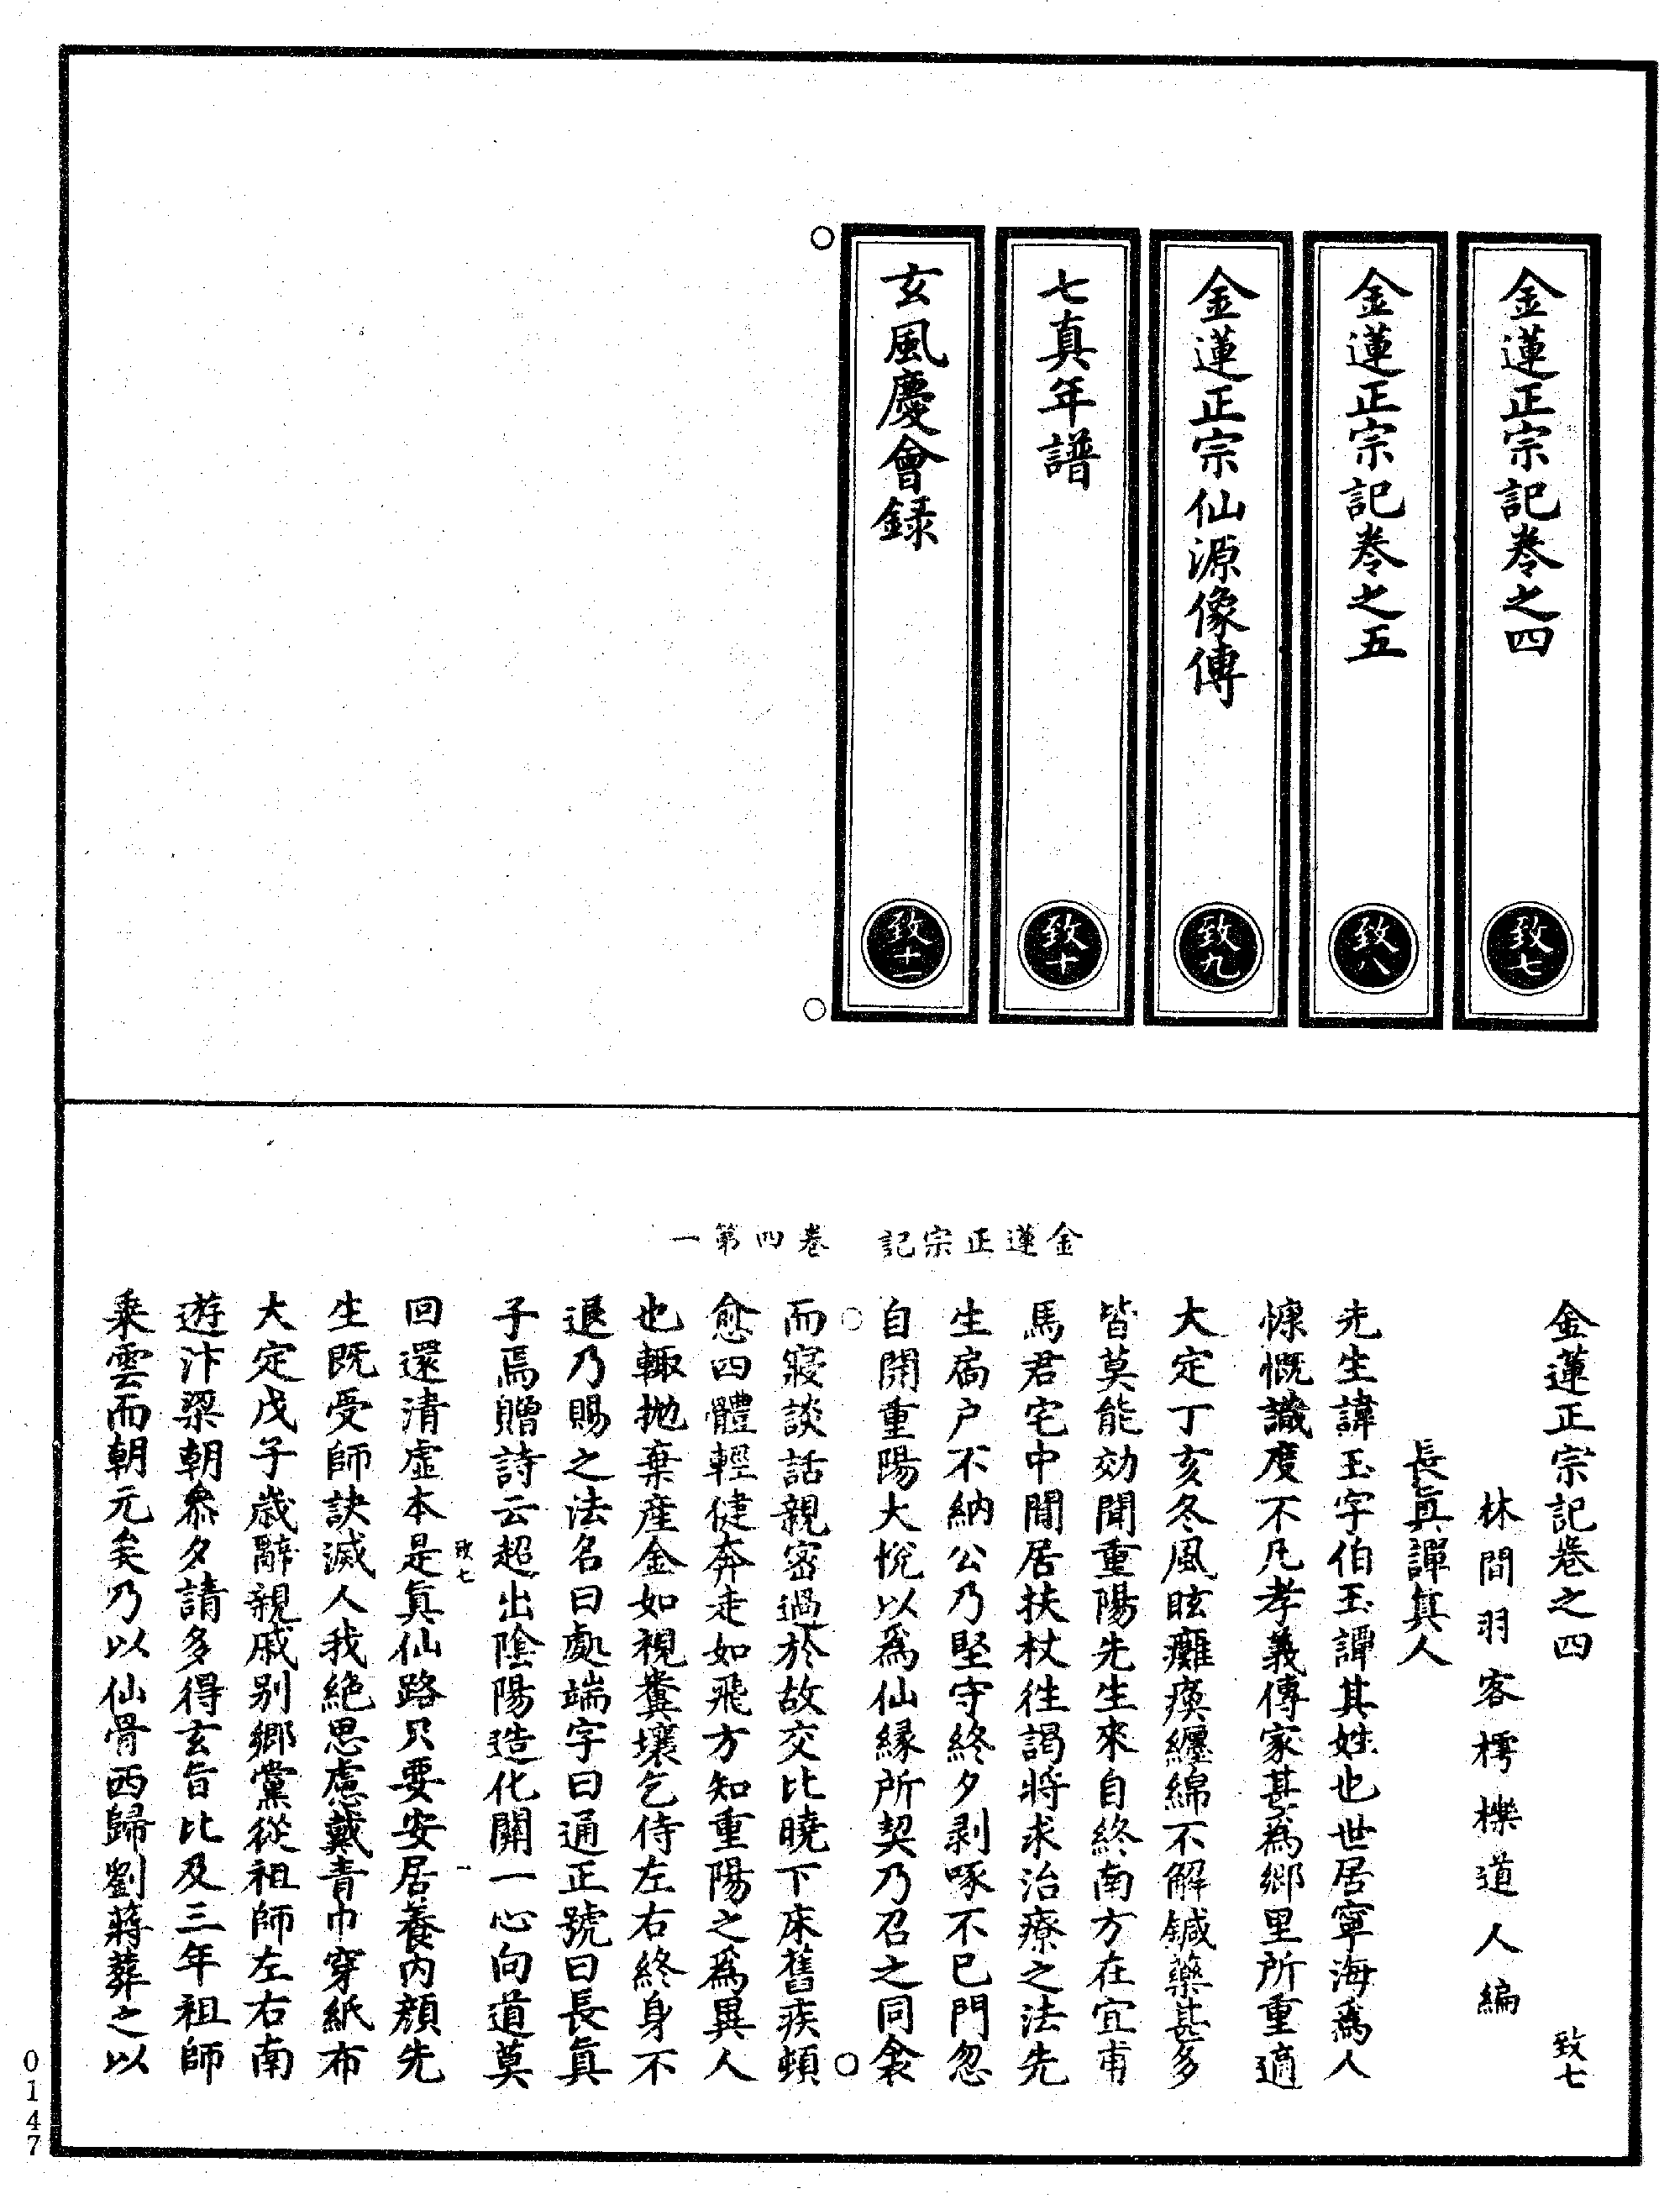 金蓮正宗記卷之四
致七
金蓮正宗記卷之五
致八
金蓮正宗仙源像傳
致九
七真年譜
致十
玄風慶會録
致十一
金蓮正宗記 卷四第一
金蓮正宗記卷之四 致七
林間羽客樗櫟道人編
長眞譚眞人
先生諱玉字伯玉譚其姓也世居寧海爲人
慷慨識度不凡孝義傳家甚爲鄉里所重適
大定丁亥冬風眩癱瘓纏綿不解鍼藥甚多
皆莫能効聞重陽先生來自終南方在宜甫
馬君宅中閒居扶杖往謁將求治療之法先
生扃户不納公乃堅守終夕剥啄不已門忽
自開重陽大悅以爲仙緣所契乃召之同衾
而寢談話親密過於故交比曉下床舊疾頓
愈四體輕健奔走如飛方知重陽之爲異人
也輙抛棄產金如視糞壤乞侍左右終身不
退乃賜之法名曰處端字曰通正號曰長眞
子焉贈詩云超出陰陽造化關一心向道莫
致七 一
回還清虛本是眞仙路只要安居養内顔先
生既受師訣滅人我絶思慮戴青巾穿紙布
大定戊子歳辭親戚别鄉黨從祖師左右南
遊汴梁朝叅夕請多得玄旨比及三年祖師
乘雲而朝元矣乃以仙骨西歸劉蔣葬之以
0147